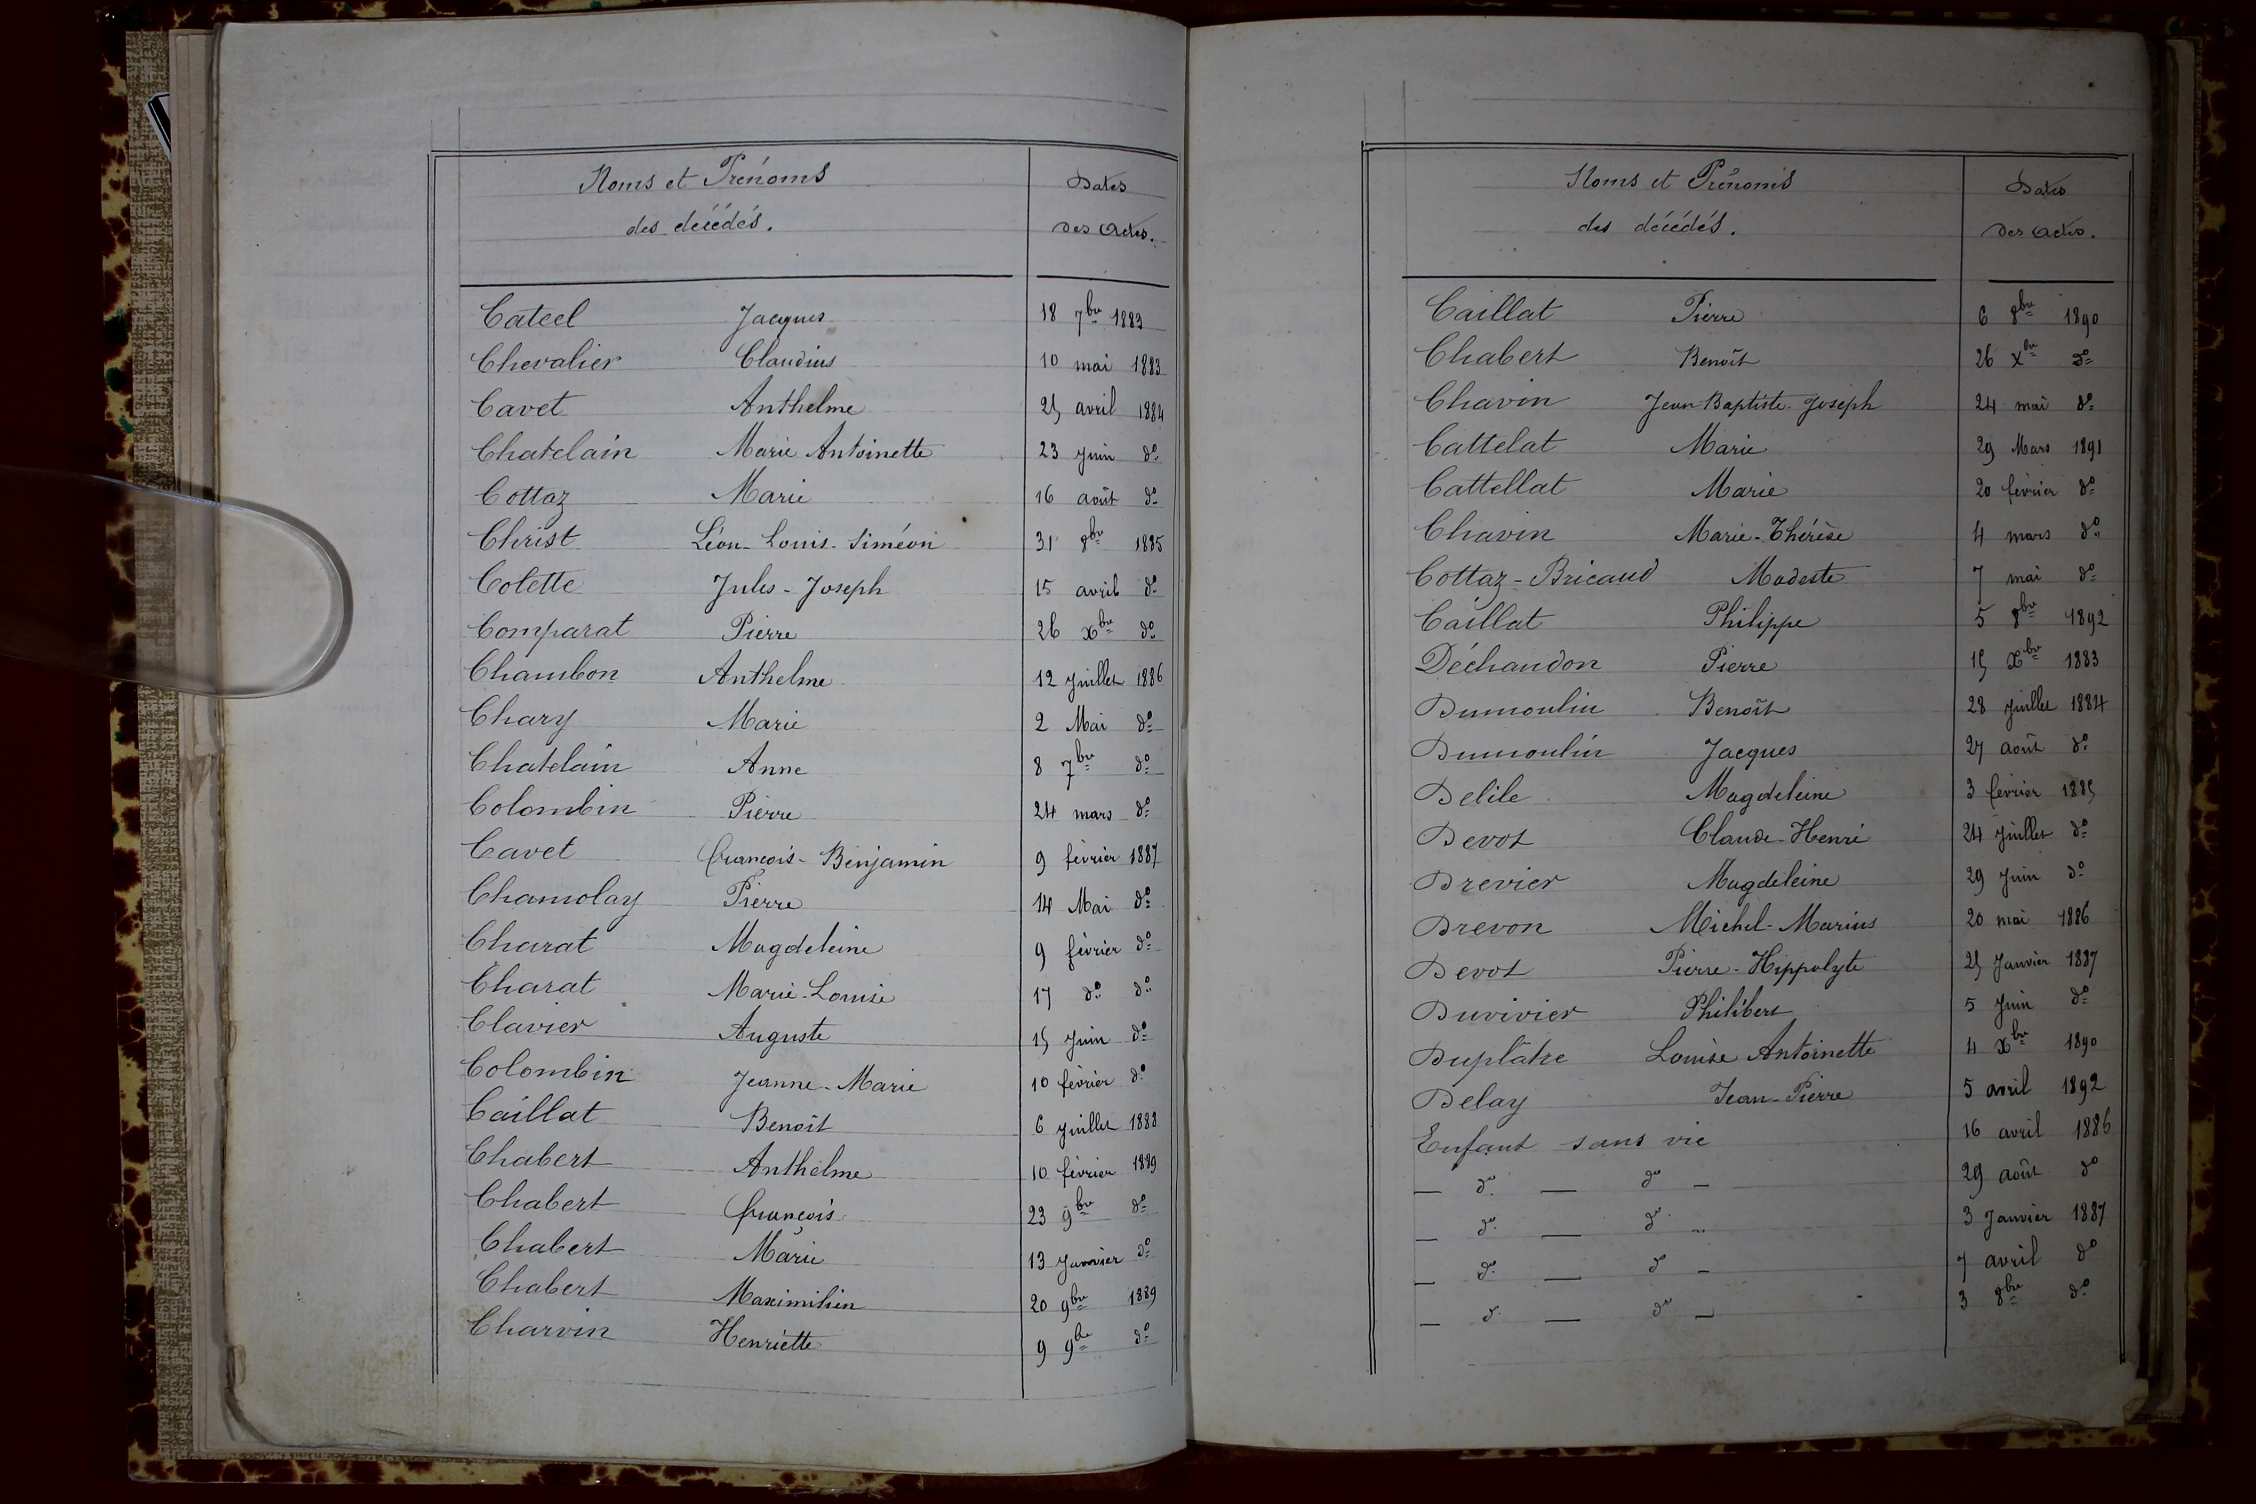 Noms et Prénoms Dates
des décédés. des Actes.
Cateel Jacques 18 7bre 1883
Chevalier Claudius 10 mai 1883
Cavet Anthelme 25 avril 1884
Chatelain Marie Antoinette 23 Juin do
Cottaz Marie 16 août do
Christ Léon-Louis-Siméon 31 8bre 1885
Colette Jules-Joseph 15 avril do
Comparat Pierre 26 xbre do
Chambon Anthelme 12 Juillet 1886
Chary Marie 2 Mai do
Chatelain Anne 8 7bre do
Colombin Pierre 24 mars do
Cavet François-Benjamin 9 février 1887
Chamolay Pierre 14 Mai do
Charat Magdeleine 9 février do
Charat Marie-Louise 17 do do
Clavier Auguste 15 Juin do
Colombin Jeanne-Marie 10 février do
Caillat Benoît 6 Juillet 1888
Chabert Anthelme 10 février 1889
Chabert François 23 9bre do
Chabert Marie 13 Janvier do
Chabert Maximilien 20 9bre 1889
Charvin Henriette 9 9bre do
Noms et Prénoms Dates
des décédés. des Actes.
Caillat Pierre 6 8bre 1890
Chabert Benoît 26 Xbre do
Chavin Jean-Baptiste-Joseph 24 mai do
Cattelat Marie 29 Mars 1891
Cattellat Marie 20 février do
Chavin Marie-Thérèse 4 mars do
Cottaz-Bricaud Modeste 7 mai do
Caillat Philippe 5 8bre 1892
Déchandon Pierre 15 xbre 1883
Dumoulin Benoît 28 Juillet 1884
Dumoulin Jacques 27 août do
Delile Magdeleine 3 février 1885
Devot Claude-Henri 24 Juillet do
Drevier Magdeleine 29 Juin do
Drevon Michel-Marius 20 mai 1886
Devot Pierre-Hippolyte 25 Janvier 1887
Duvivier Philibert 5 Juin do
Duplâtre Louise Antoinette 4 xbre 1890
Delay Jean-Pierre 5 avril 1892
Enfant sans vie 16 avril 1886
— do — do — 29 août do
— do — do — 3 Janvier 1887
— do — do — 7 avril do
— do — do — 3 8bre do